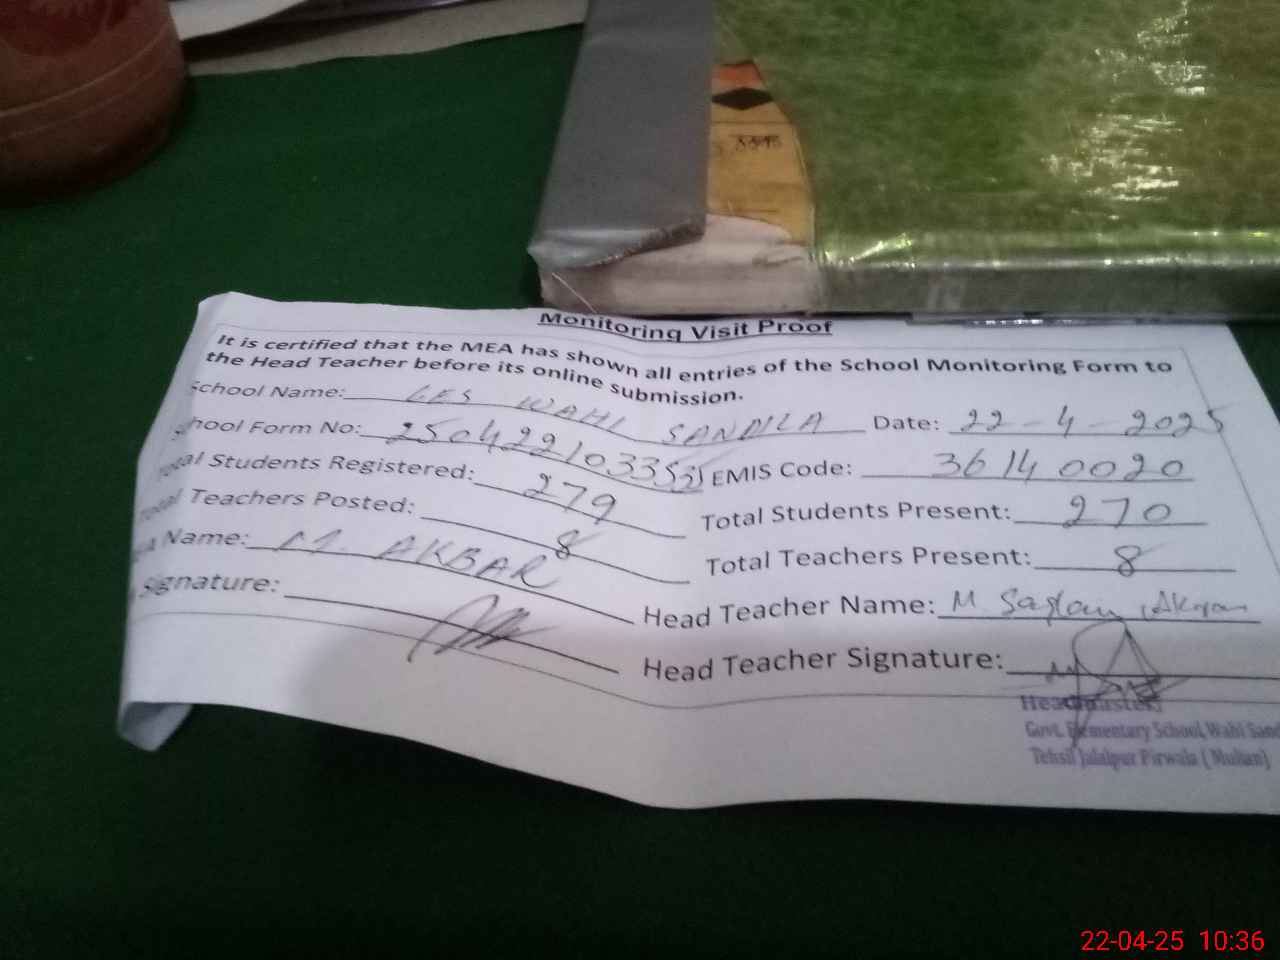 Monitoring Visit Proof
It is certified that the MEA has shown all entries of the School Monitoring Form to
the Head Teacher before its online submission.
School Name: GES WAHI SANDILA Date: 22-4-2025
hool Form No: EMIS Code: 36140020
Total Students Registered: 279 Total Students Present: 270
Total Teachers Posted: 8 Total Teachers Present: 8
A Name: M. AKBAR Head Teacher Name: M
Signature: Head Teacher Signature:
Headmaster
Govt. Elementary School, Wahi Sand
Tehsil Jalalpur Pirwala (Multan)
22-04-25 10:36